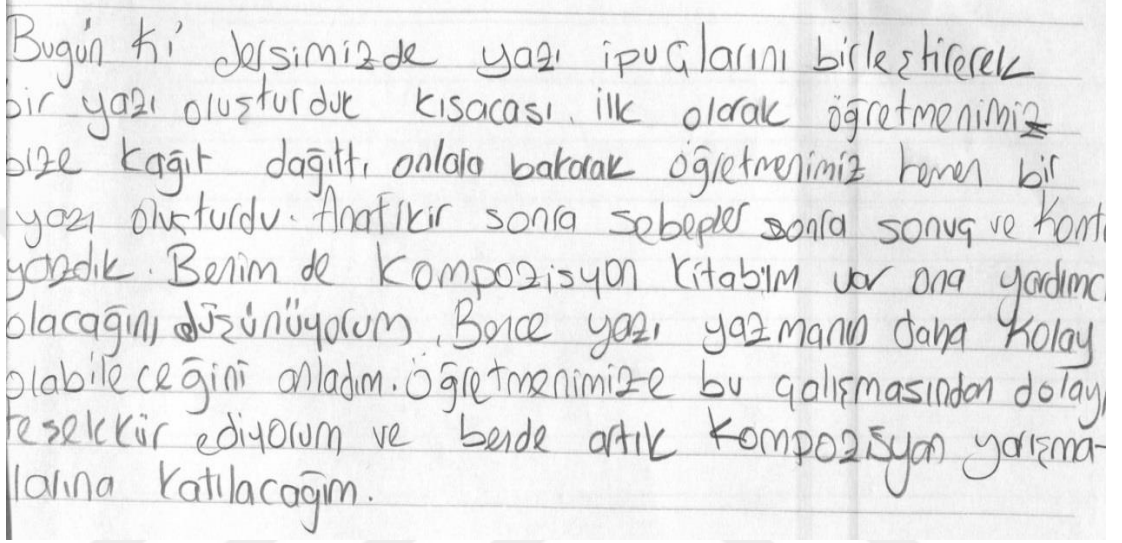 Bugün ki dersimizde yazı ipuçlarını birleştirerek
bir yazı oluşturduk kısacası. ilk olarak öğretmenimiz
bize kağıt dağıttı, onlara bakarak öğretmenimiz hemen bir
yazı oluşturdu. Anafikir sonra sebepler sonra sonuç ve
yazdık. Benim de kompozisyon kitabım var ona yardımc
olacağını düşünüyorum. Bence yazı yazmanın daha kolay
olabileceğini anladım. Öğretmenimize bu çalışmasından dolayı
teşekkür ediyorum ve bende artık kompozisyon yarışma-
larına katılacağım.